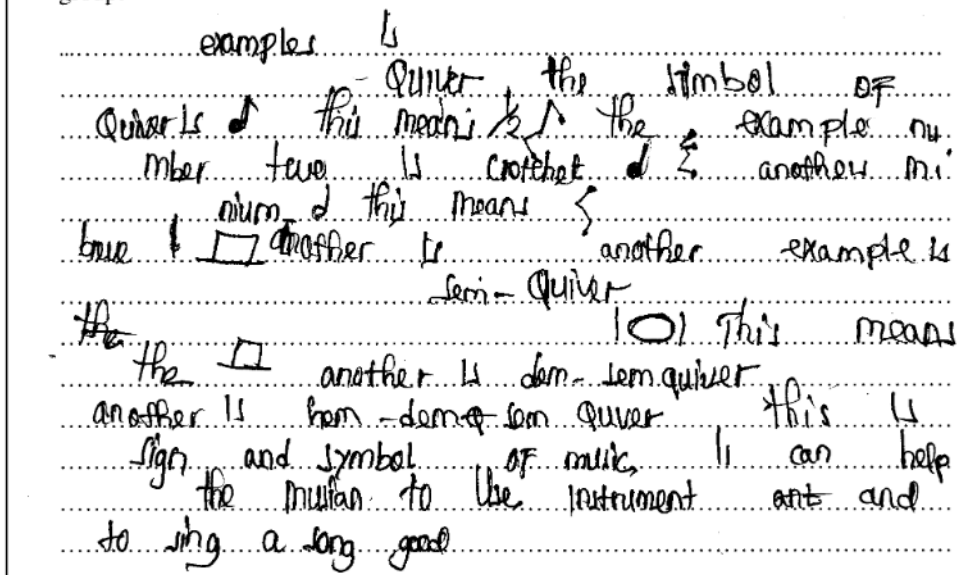 examples is
- Quiver the simbol OF
Quiver is ♪ this means ½ the example nu
mber twue is crotchet ♩ anotheu mi
nium this means
breue another is another example is
semi - Quiver
the |O| This means
the another is dem - sem quiver
another is hem - demo sem Quver this is
sign and symbol OF music, Is can help
the musian to Use instrument ant and
to sing a song good